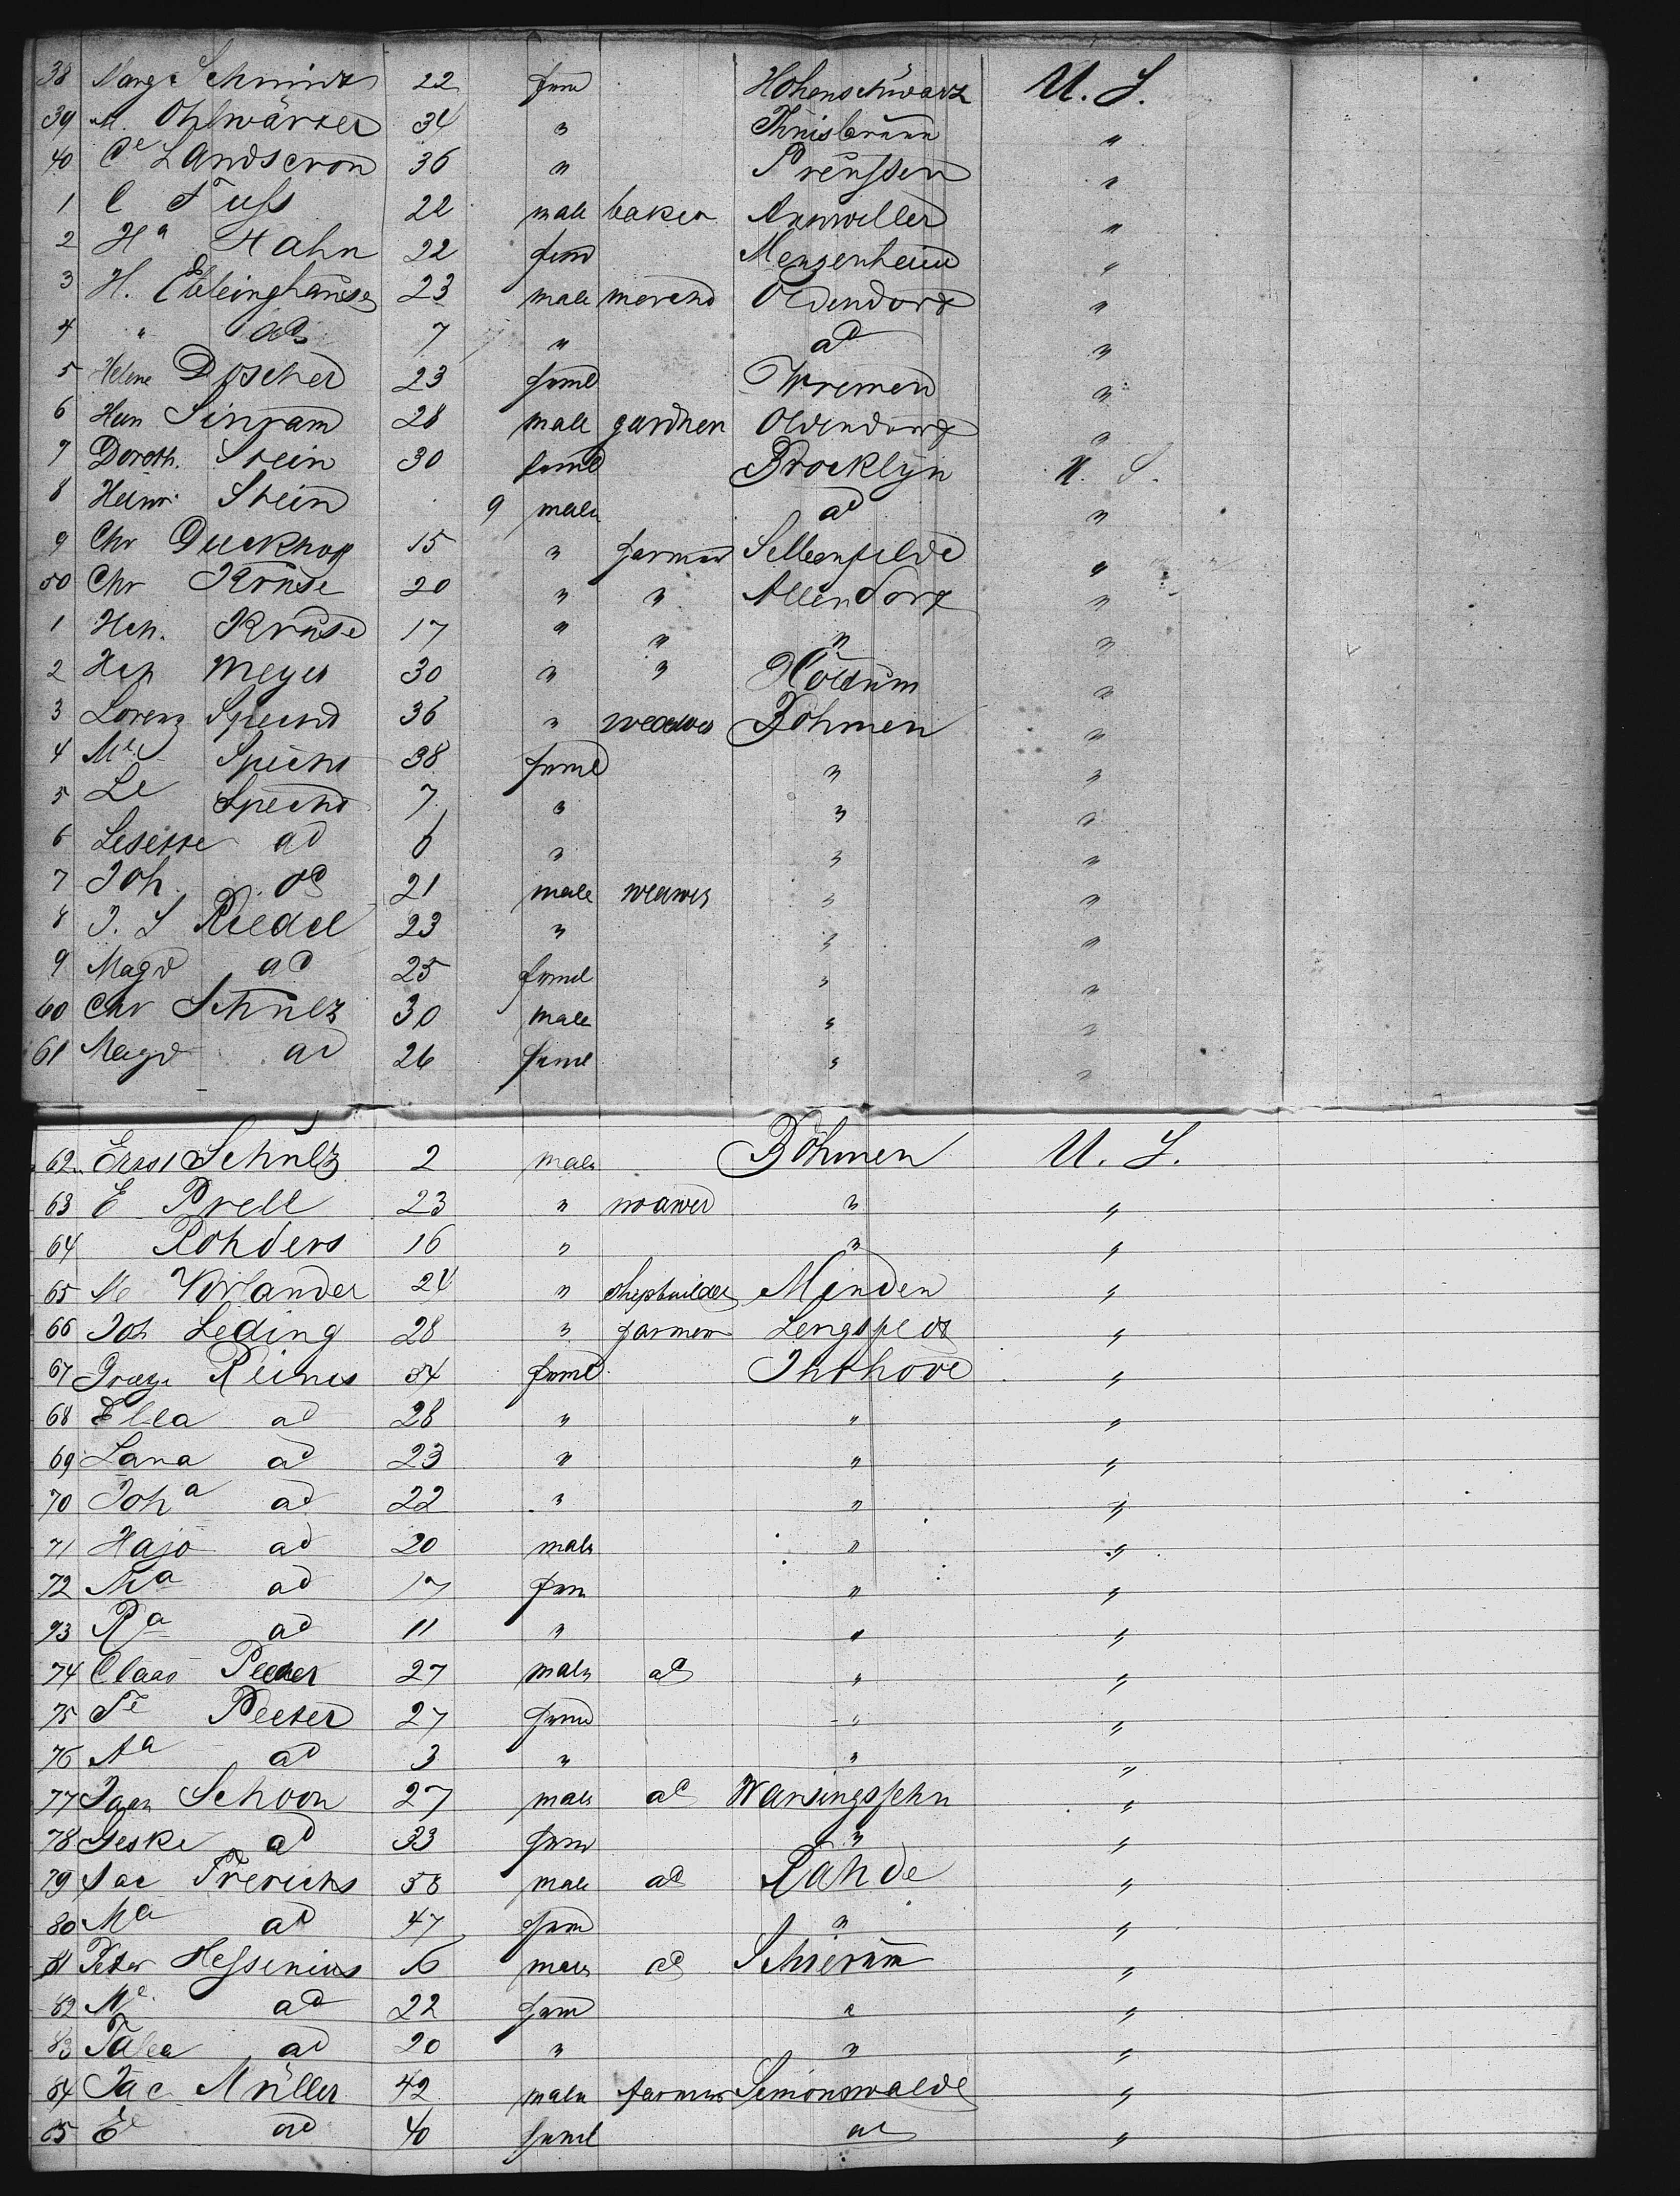 38 Marg Schmidt 22 fem Hohenschwarz U. S.
39 M. Ohlwärter 34 " Thuisbrunn "
40 Ce Landscron 36 " Preussen "
1 C Fuss 22 male baker Annweller "
2 Ha Hahn 22 fem Mengenheim "
3 H. Ebbinghause 23 male merchd Oldendorf "
4 " ad 7 " ad "
5 Helene Doscher 23 feml Wremen "
6 Hein Sinram 28 male gardner Oldendorf "
7 Doroth. Stein 30 feml Brocklyn U. S.
8 Heinr Stein 9 male ad "
9 Chr Duckhop 15 " farmer "
50 Chr Kruse 20 " " Allendorf "
1 Hch. Kruse 17 " " " "
2 Hch Meyer 30 " " "
3 Lorenz Specht 36 " weawer Böhmen "
4 Me Specht 38 feml " "
5 Le Specht 7 " " "
6 Lisette ad 6 " " "
7 Joh. ad 21 male weawer " "
8 J. S Riedel 23 " " "
9 Magd ad 25 femel " "
60 Chr Schulz 30 male " "
61 Magd ad 26 feml " "
62 Ernst Schulz 2 male Böhmen U. S.
63 E Prell 23 " weawer " "
64 Rohders 16 " " "
65 M Vorlander 24 " Shepbuilder Minden "
66 Joh Leding 28 " farmer "
67 Reiners 34 feml Ihrhove "
68 Elea ad 28 " " "
69 Lana ad 23 " " "
70 Joha ad 22 " " "
71 Hajo ad 20 male " "
72 Ma ad 17 fem " "
73 Ra ad 11 " " "
74 Claas Peeter 27 male ad " "
75 Te Peeter 27 feml " "
76 Aa ad 3 " " "
77 Schoon 27 male ad Warsingsfehn "
78 Geske ad 33 fem " "
79 Jac Frerichs 58 male ad Rahde "
80 Ma ad 47 fem " "
81 Peter Hessenius 16 male ad Schierum "
82 Me. ad 22 fem " "
83 Talea ad 20 " " "
84 Jac Müller 42 male farmer Simonswalde "
85 Ee ad 40 femel ad "